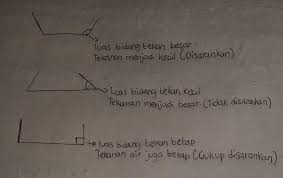 luas bidang tekan besar
Tekanan menjadi kecil (Disarankan)
Luas bidang tekan kecil
Tekanan menjadi besar (Tidak disarankan)
luas bidang tekan tetap
Tekanan air juga tetap (Cukup disarankan)